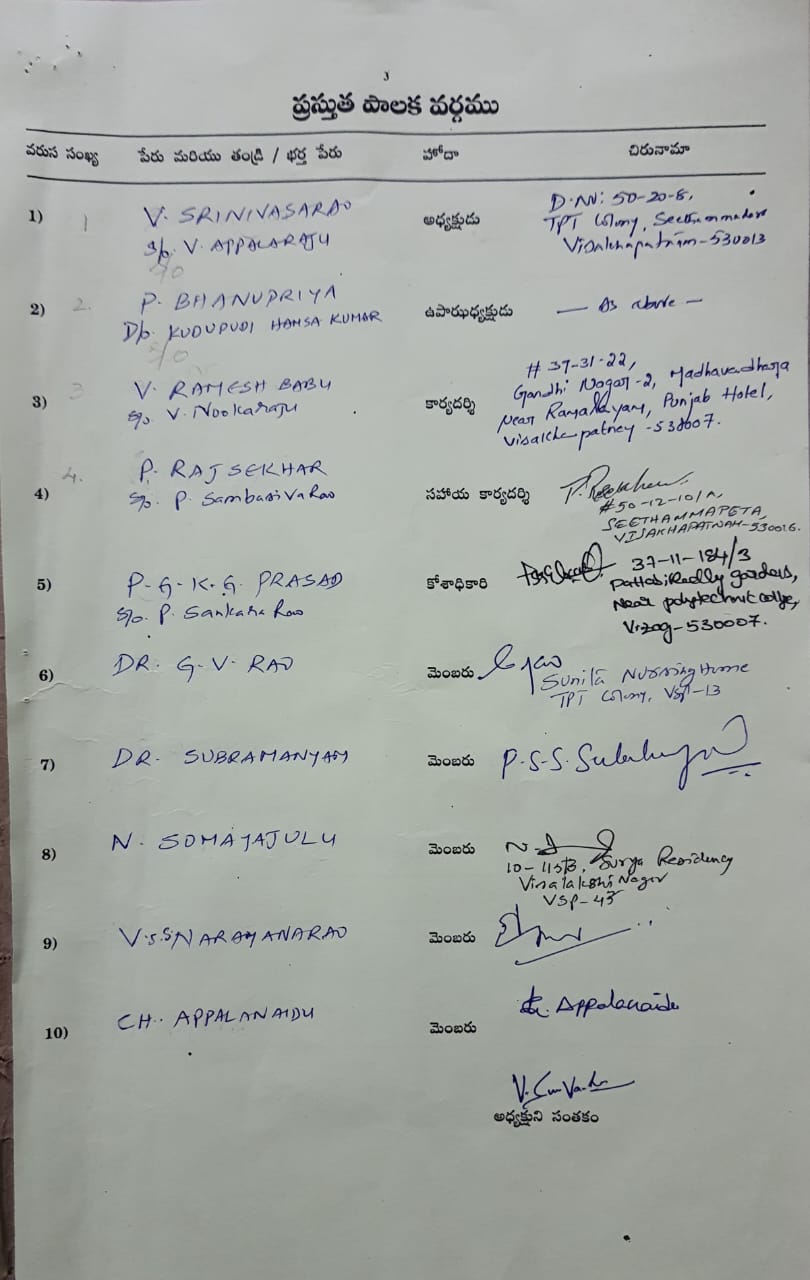 3
ప్రస్తుత పాలక వర్గము
వరుస సంఖ్య పేరు మరియు తండ్రి / భర్త పేరు హోదా చిరునామా
1) 1 V. SRINIVASARAO అధ్యక్షుడు D.No: 50-20-8,
S/o. V. APPALARAJU TPT Colony, Seethammadara
Visakhapatnam-530013
2) 2. P. BHANUPRIYA ఉపాధ్యక్షుడు — As above —
D/o. KUDUPUDI HAMSA KUMAR
3) 3 V. RAMESH BABU కార్యదర్శి # 37-31-22,
S/o. V. Nookaraju Gandhi Nagar-2, Madhavadhara
Near Ramalayam, Punjab Hotel,
-530007.
4) 4. P. RAJSEKHAR సహాయ కార్యదర్శి
S/o. P. Sambasiva Rao #50-12-10/A,
SEETHAMMAPETA,
VISAKHAPATNAM-530016.
5) P.G.K.G. PRASAD కోశాధికారి 37-11-184/3
S/o. P. Sankara Rao Pattabi Reddy gardens,
Near polytechnic college,
Vizag-530007.
6) DR. G.V. RAO మెంబరు
Sunita Nursing Home
TPT Colony, VSP-13
7) DR. SUBRAMANYAM మెంబరు P.S.S.
8) N. SOMAYAJULU మెంబరు N.
Surya Residency
Visalakshi Nagar
VSP-43
9) V.S.S NARAYANARAO మెంబరు
10) CH. APPALANAIDU మెంబరు Ch. Appalanaidu
అధ్యక్షుని సంతకం